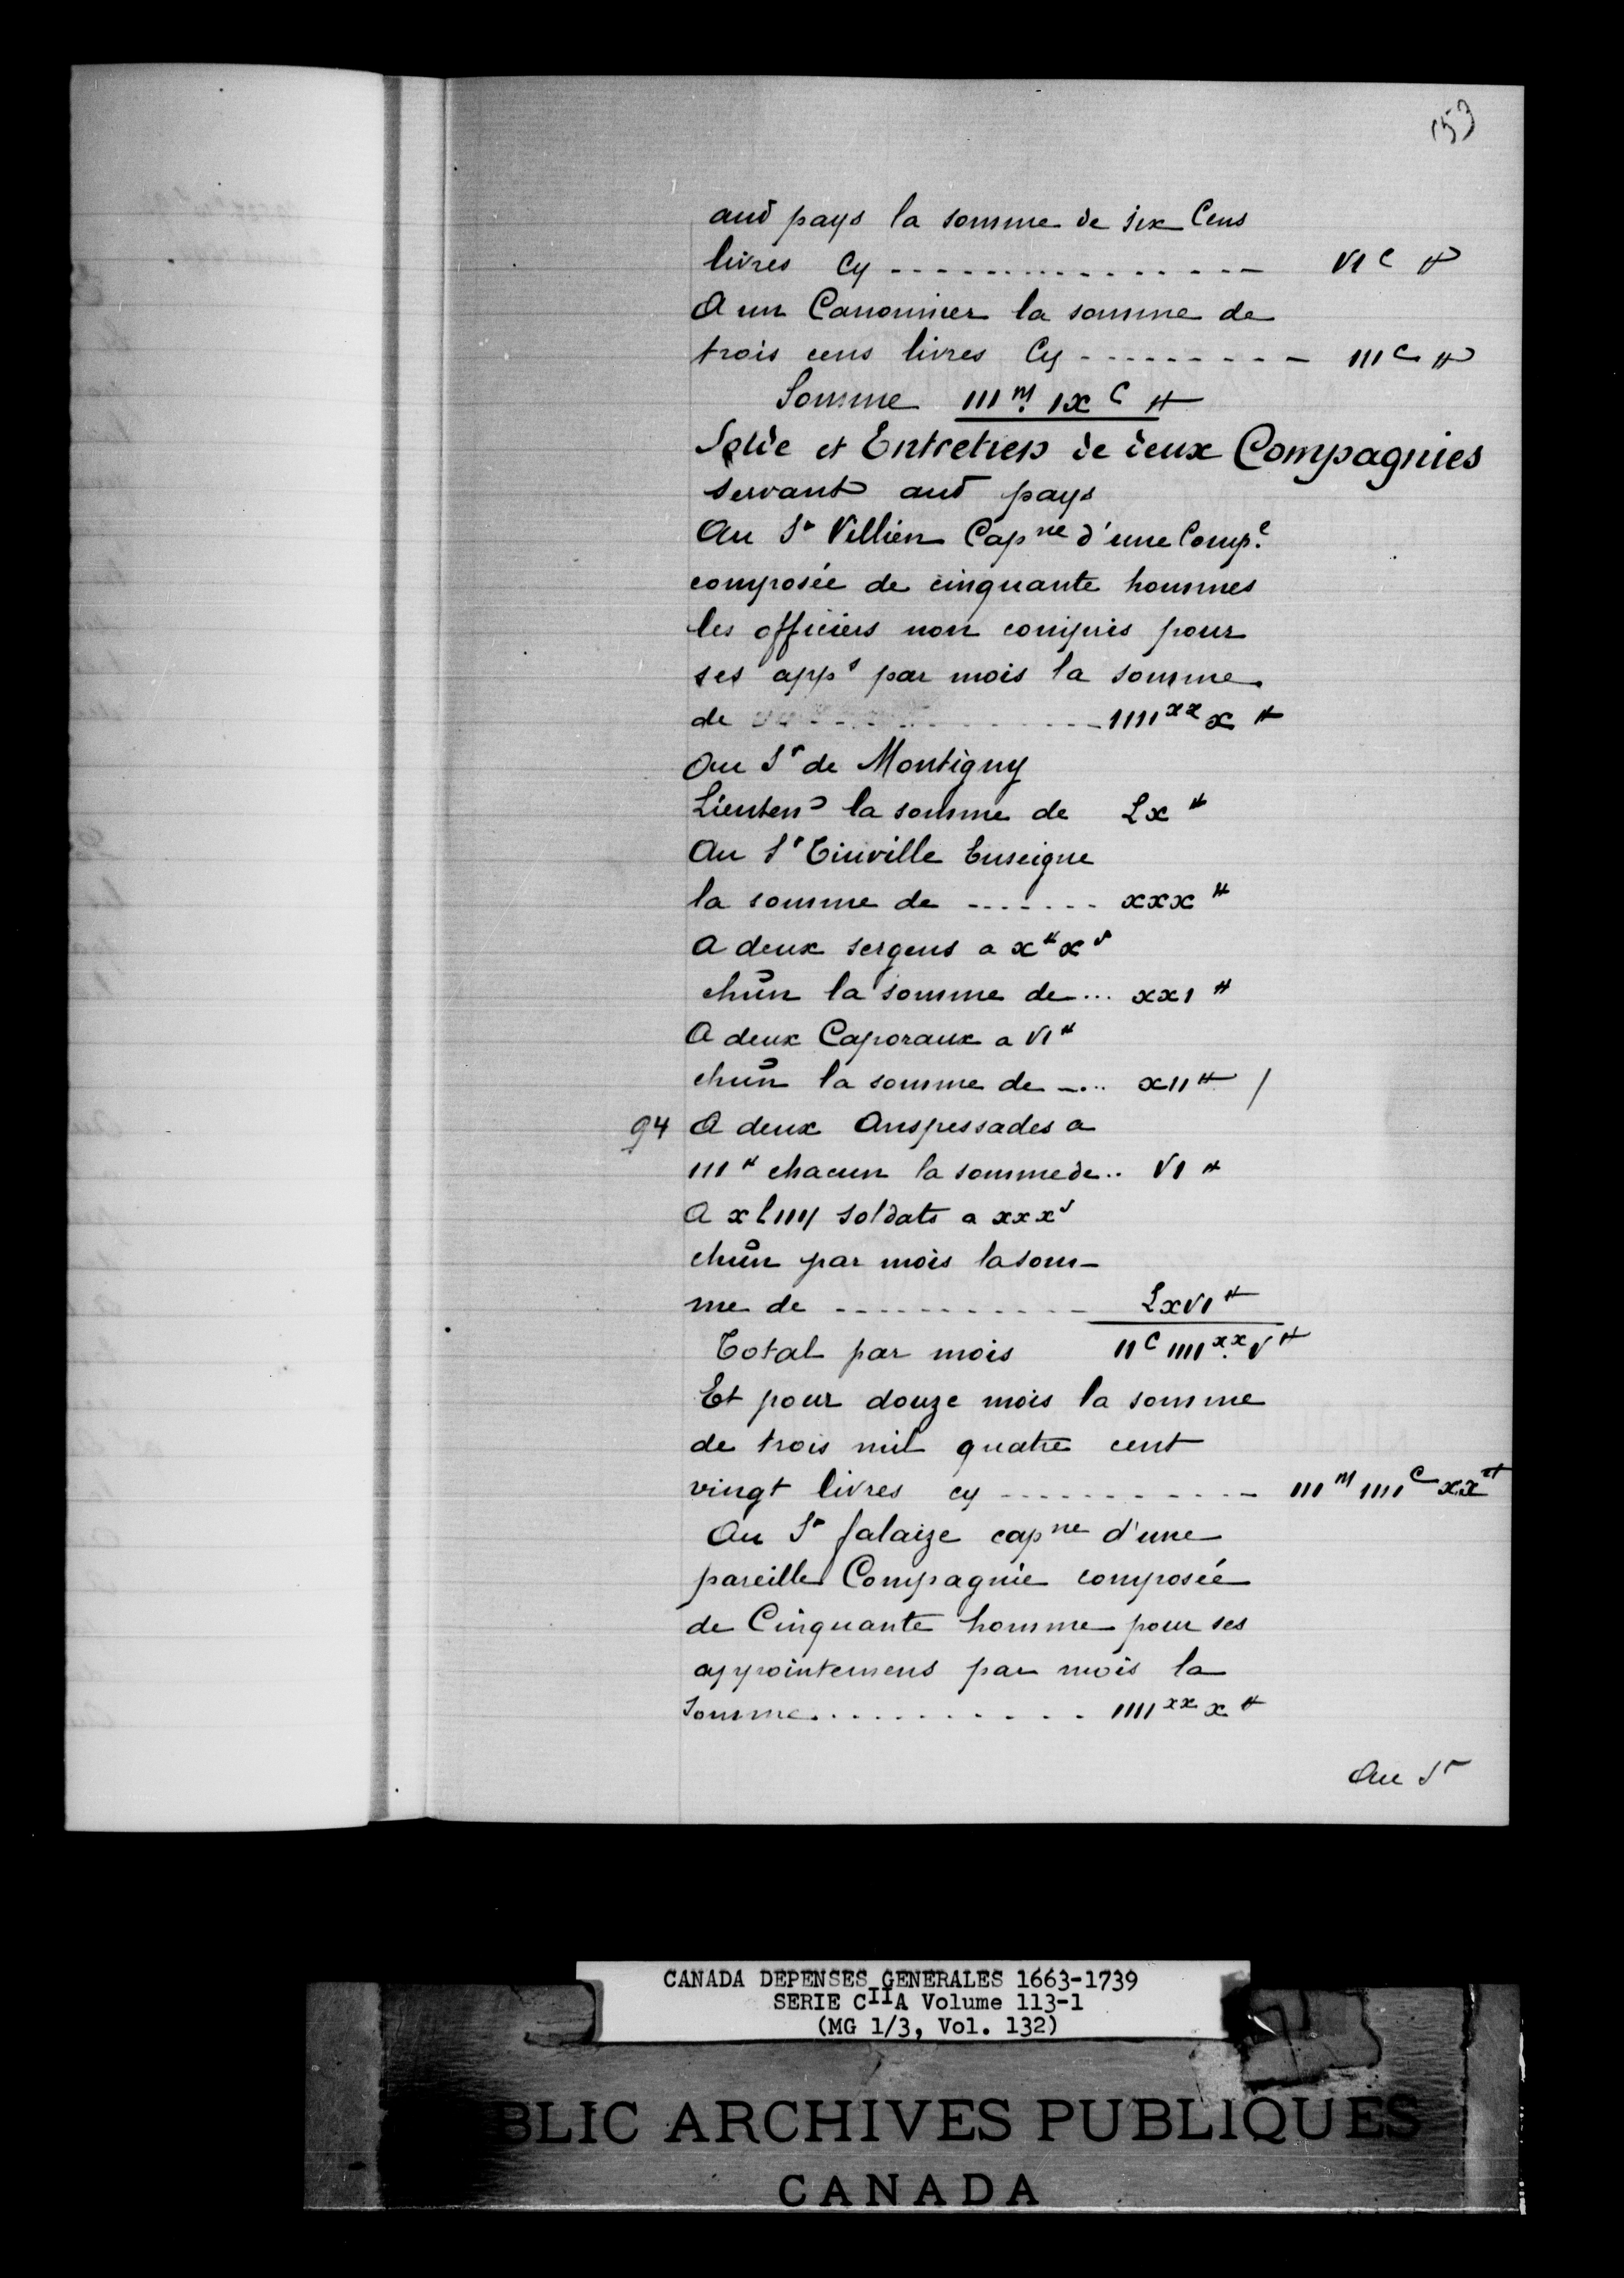 153
aud pays la somme de six Cens
livres Cy - - - - - - - - - - - - - - - VI c ₶
A un Canonnier la somme de
trois cens livres Cy - - - - - - - - - III c ₶
Somme III m IX c ₶
Solde et Entretien de deux Compagnies
servant aud pays
Au Sr Villien Capne d'une Compe
composée de cinquante hommes
les officiers non compris pour
ses apps par mois la somme
de - - - - - - - - - IIII xx x ₶
Au Sr de Montigny
Lieuten la somme de Lx ₶
Au Sr Tinville Enseigne
la somme de - - - - - - - xxx ₶
A deux sergens a x ₶ x s
chũn la somme de ... xxI ₶
A deux Caporaux a VI ₶
chũn la somme de - ... xII ₶ /
94 A deux Anspessades a
III ₶ chacun la somme de .. VI ₶
A xLIIII soldats a xxx s
chũn par mois la som-
me de - - - - - - - - - - - LxVI ₶
Total par mois II c IIII xx V ₶
Et pour douze mois la somme
de trois mil quatre cent
vingt livres cy - - - - - - - - - - - III m IIII c xx ₶
Au Sr falaize capne d'une
pareille Compagnie composée
de Cinquante homme pour ses
appointemens par mois la
Somme . . . . . . . . . . . IIII xx x ₶
Au Sr
CANADA DEPENSES GENERALES 1663-1739
SERIE CIIA Volume 113-1
(MG 1/3, Vol. 132)
BLIC ARCHIVES PUBLIQUES
CANADA